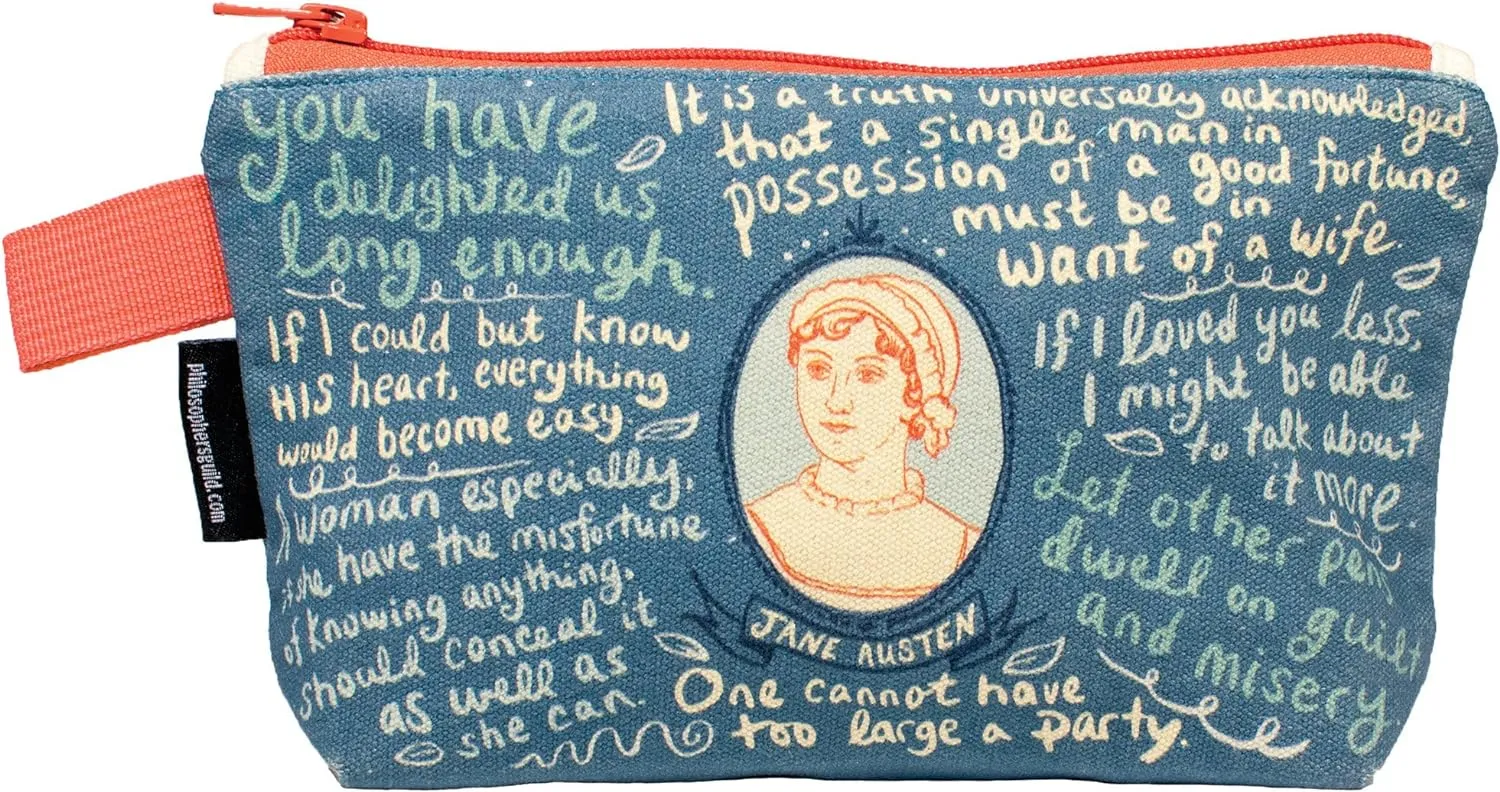 you have
delighted us
long enough.
It is a truth universally acknowledged,
that a single man in
possession of a good fortune,
must be in
want of a wife.
If I could but know
HIS heart, everything
would become easy
A woman especially,
if she have the misfortune
of knowing anything,
should conceal it
as well as
she can.
If I loved you less,
I might be able
to talk about
it more.
Let other pens
dwell on guilt
and misery.
One cannot have
too large a party.
JANE AUSTEN
philosophersguild.com